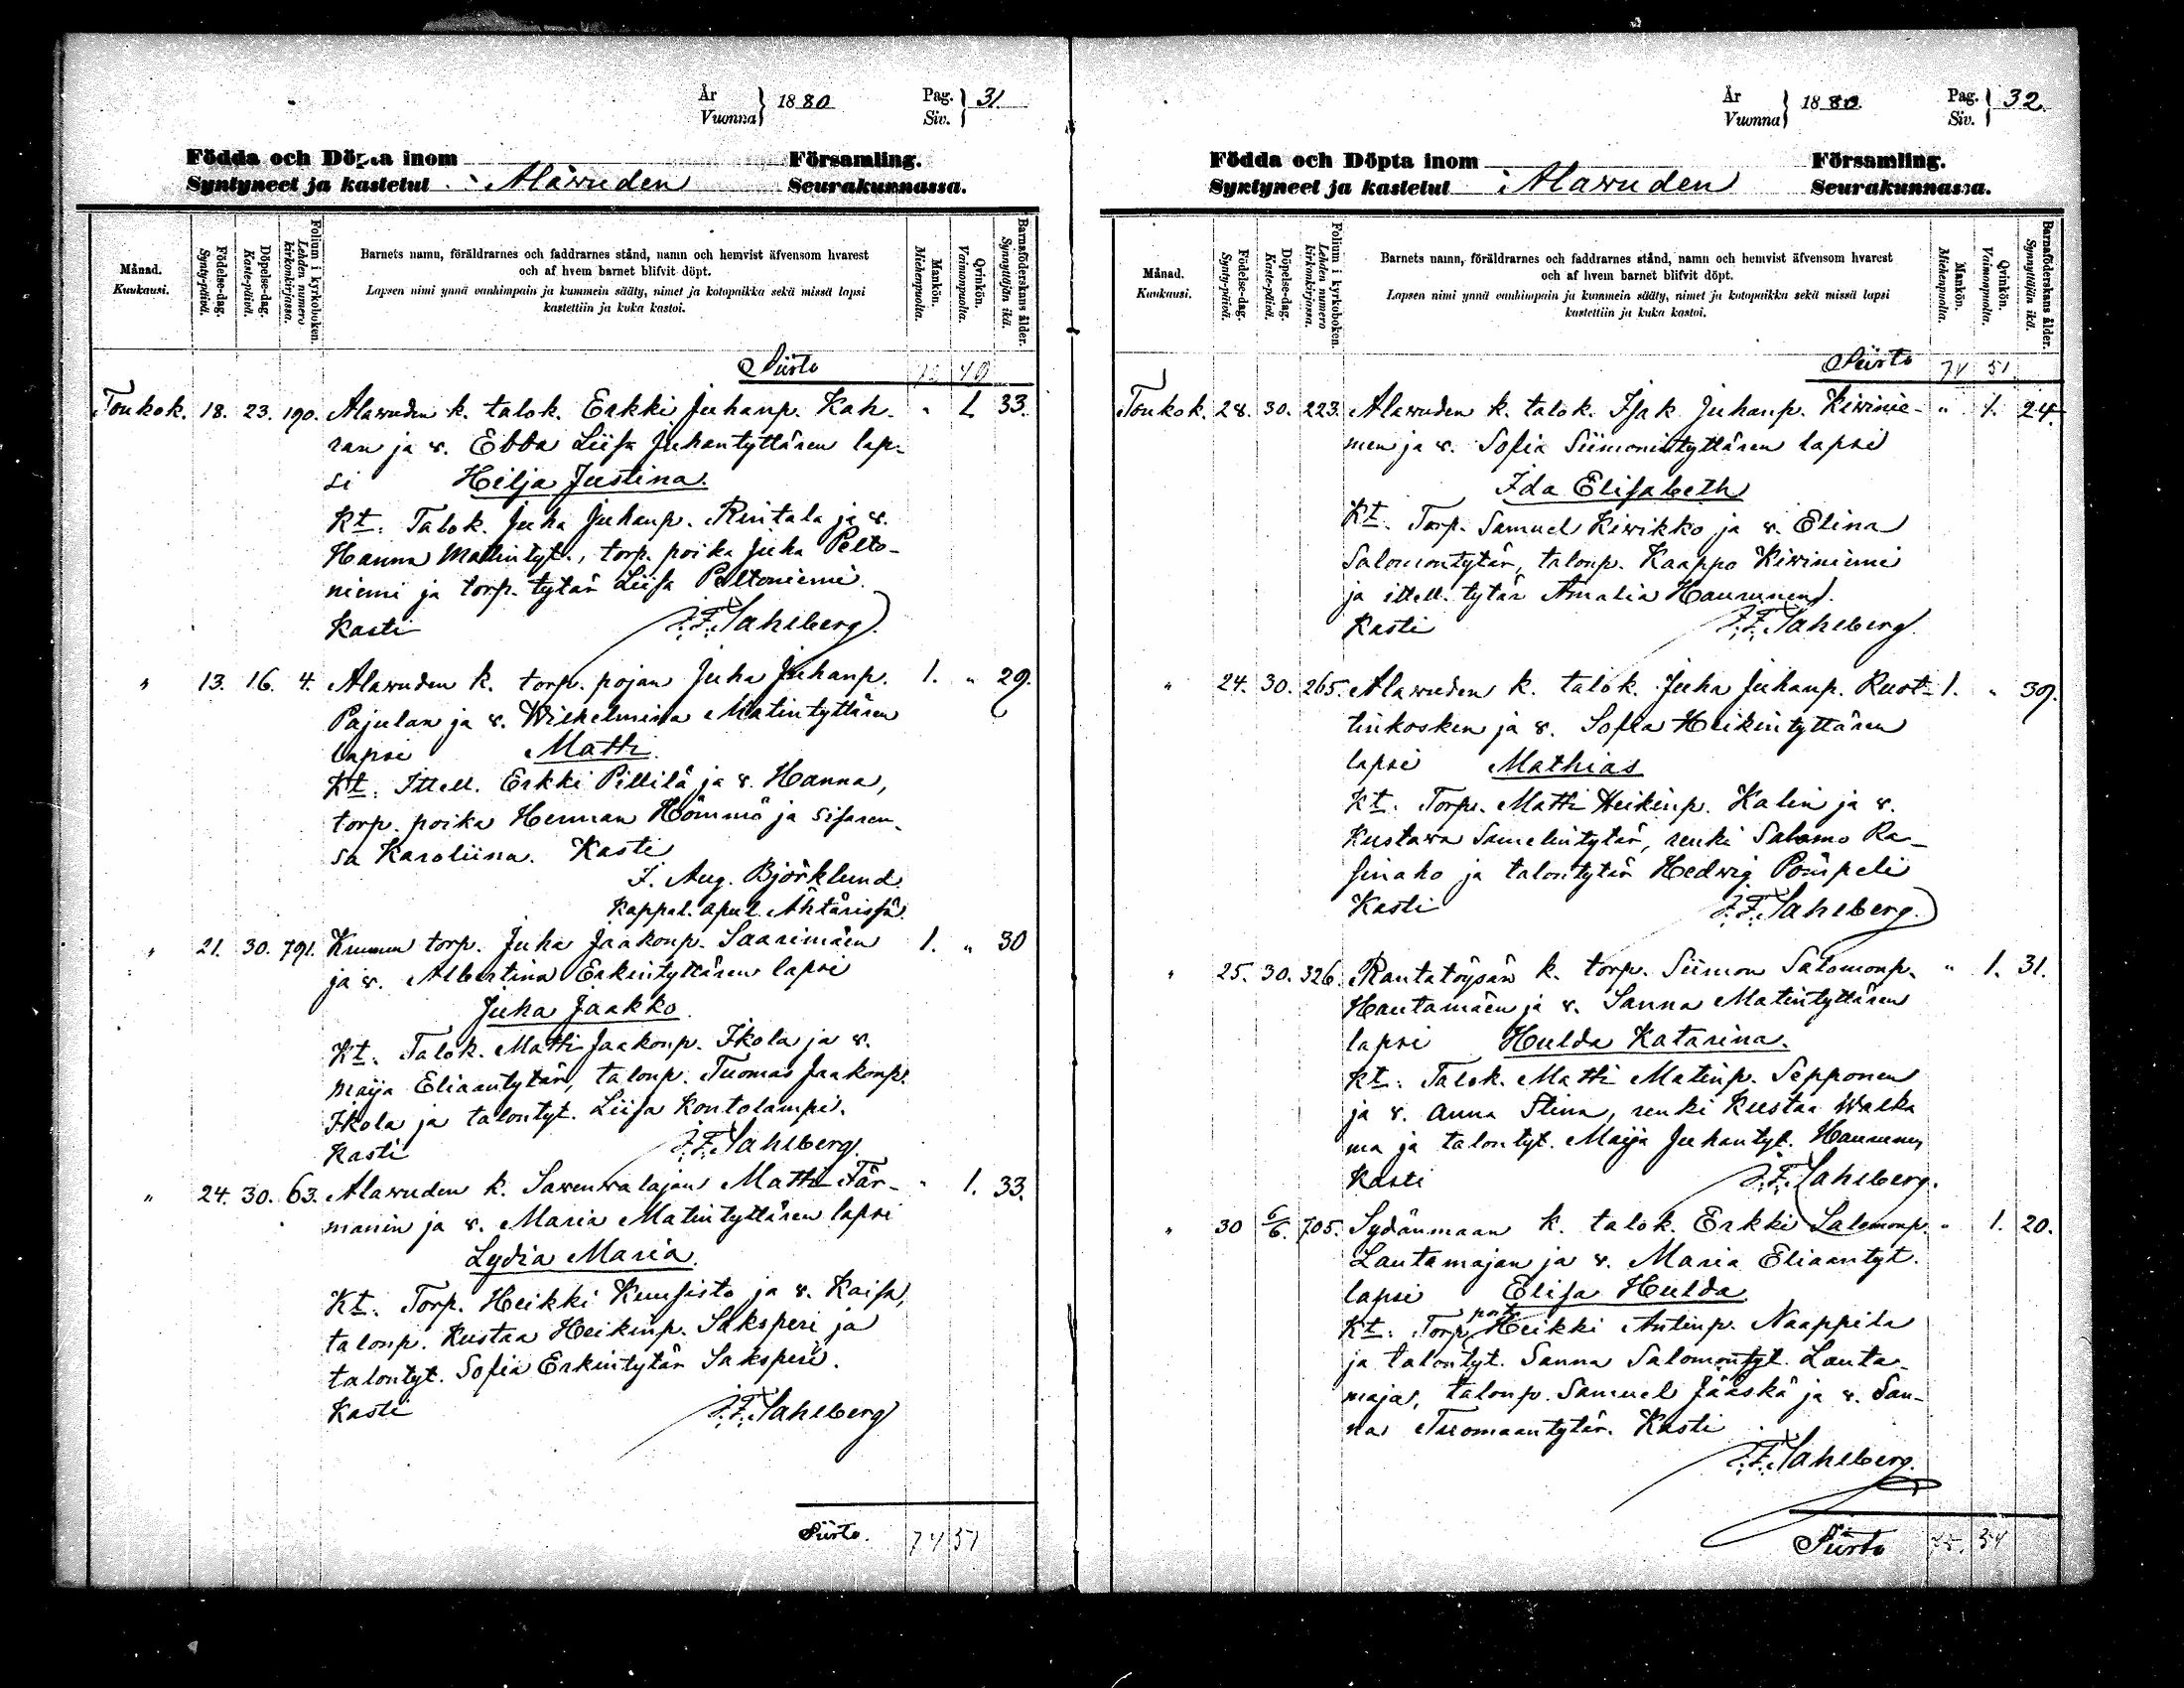 År
Vuonna
1880
Pag.
Siv.
31.
Födda och Döpta inom
Syntyneet ja kastetut
Alawuden
Församling.
Seurakunnassa.
Månad.
Kuukausi.
Födelse-dag.
Synty-päivä.
Döpelse-dag.
Kaste-päivä.
Folium i kyrkoboken.
Lehden numero
kirkonkirjassa.
Barnets namn, föräldrarnes och faddrarnes stånd, namn och hemvist äfvensom hvarest
och af hvem barnet blifvit döpt.
Lapsen nimi ynnä vanhimpain ja kummein sääty, nimet ja kotopaikka sekä missä lapsi
kastettiin ja kuka kastoi.
Mankön.
Miehenpuolia.
Qvinkön.
Vaimonpuolia.
Barnaföderskans ålder.
Synnyttäjän ikä.
Siirto 49
Toukok. 18. 23. 190. Alawuden k. talok. Erkki Juhanp. Kah- " 1. 33.
ran ja v. Ebba Liisa Juhantyttären lap-
si Hilja Justina.
Kt. Talok. Juha Juhanp. Rintala ja v.
Hanna Matintyt., torp. poika Juha Pelto-
niemi ja torp. tytär Liisa Peltoniemi.
Kasti J. F. Sahlberg.
" 13. 16. 4. Alawuden k. torp. pojan Juha Juhanp. 1. " 29.
Pajulan ja v. Wilhelmina Matintyttären
lapse Matti
Kt. Ittell. Erkki Pillilä ja v. Hanna,
torp. poika Herman Hömmö ja sisaren-
sa Karoliina. Kasti
J. Aug. Björklund.
Kappal. apul. Ähtärissä.
" 21. 30. 791. Kruunun torp. Juha Jaakonp. Saarimäen 1. " 30
ja v. Albertina Erkintyttären lapsi
Juha Jaakko.
Kt. Talok. Matti Jaakonp. Ikola ja v.
Maija Eliaantytär, talonp. Tuomas Jaakonp.
Ikola ja talontyt. Liisa Kontolampi.
Kasti J. F. Sahlberg.
" 24. 30. 63. Alawuden k. Sawenwalajan Matti Fär- " 1. 33.
manin ja v. Maria Matintyttären lapsi
Lydia Maria.
Kt. Torp. Heikki Kuusisto ja v. Kaisa,
talonp. Kustaa Heikinp. Saksperi ja
talontyt. Sofia Erkintytär Saksperi.
Kasti J. F. Sahlberg
Siirto. 74 51
År
Vuonna
1880.
Pag.
Siv.
32.
Födda och Döpta inom
Syntyneet ja kastetut
Alawuden
Församling.
Seurakunnassa.
Månad.
Kuukausi.
Födelse-dag.
Synty-päivä.
Döpelse-dag.
Kaste-päivä.
Folium i kyrkoboken.
Lehden numero
kirkonkirjassa.
Barnets namn, föräldrarnes och faddrarnes stånd, namn och hemvist äfvensom hvarest
och af hvem barnet blifvit döpt.
Lapsen nimi ynnä vanhimpain ja kummein sääty, nimet ja kotopaikka sekä missä lapsi
kastettiin ja kuka kastoi.
Mankön.
Miehenpuolia.
Qvinkön.
Vaimonpuolia.
Barnaföderskans ålder.
Synnyttäjän ikä.
Siirto 74 51
Toukok. 28. 30. 223. Alawuden k. talok. Isak Juhanp. Kiwinie- " 1. 24.
men ja v. Sofia Siimonintyttären lapsi
Ida Elisabeth
Kt. Torp. Samuel Kiwikko ja v. Elina
Salomontytär, talonp. Kaappo Kiwiniemi
ja ittell. tytär Amalia Haurunen.
Kasti J. F. Sahlberg.
" 24. 30. 265. Alawuden k. talok. Juha Juhanp. Ruot- 1. " 39.
tinkosken ja v. Sofia Heikintyttären
lapsi Mathias
Kt. Torp. Matti Heikinp. Kalin ja v.
Kustawa Samelintytär, renki Salomo Ra-
sinaho ja talontytär Hedwig Pömpeli
Kasti J. F. Sahlberg.
" 25. 30. 326. Rantatöysän k. torp. Siimon Salomonp. " 1. 31.
Hautamäen ja v. Sanna Matintyttären
lapsi Hulda Katarina.
Kt. Talok. Matti Matinp. Sepponen
ja v. Anna Stina, renki Kustaa Walka
ma ja talontyt. Maija Juhantyt.
Kasti J. F. Sahlberg.
" 30 6/6. 705. Sydänmaan k. talok. Erkki Salomonp. " 1. 20.
Lautamajan ja v. Maria Eliaantyt.
lapsi Elisa Hulda
Kt. Torp. poika Heikki Antinp. Naappila
ja talontyt. Sanna Salomontyt. Lauta-
maja, talonp. Samuel Jääskä ja v. San-
na Tuomaantytär. Kasti
J. F. Sahlberg.
Siirto 75. 54